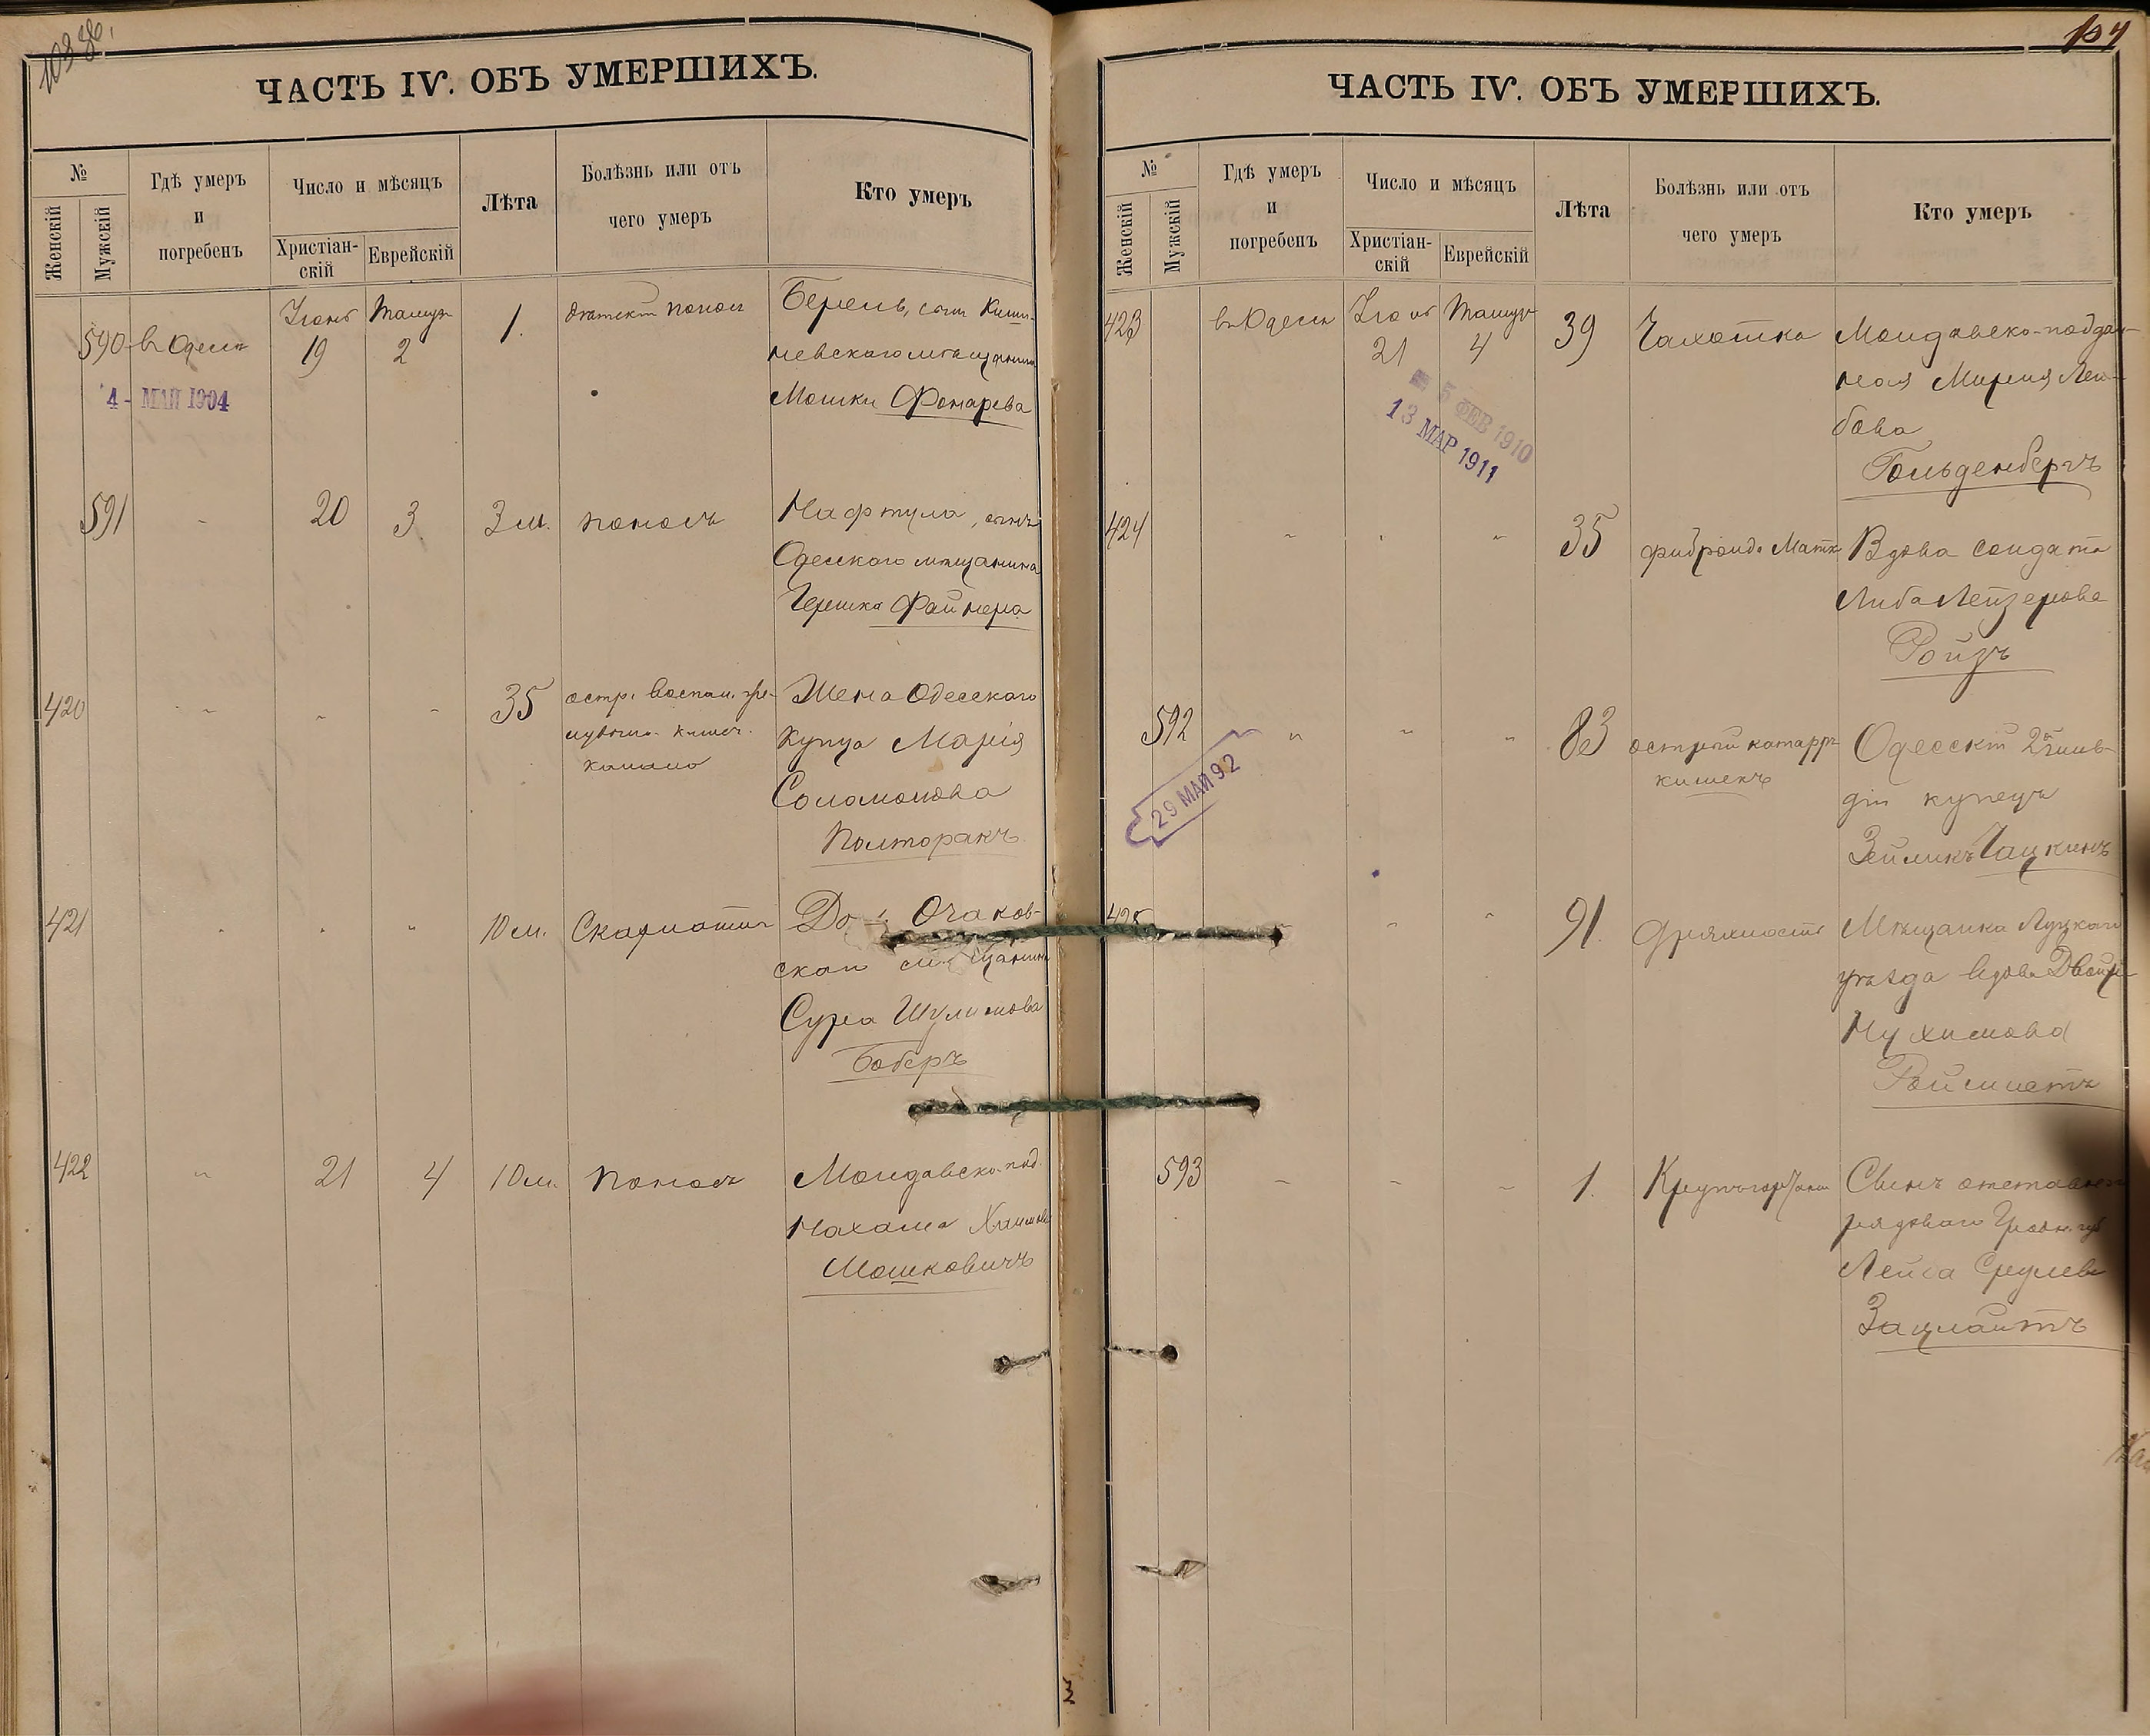 103 об.
ЧАСТЬ IV. ОБЪ УМЕРШИХЪ.
№
Женскій
Мужскій
Гдѣ умеръ
и
погребенъ
Число и мѣсяцъ
Христіан-
скій
Еврейскій
Лѣта
Болѣзнь или отъ
чего умеръ
Кто умеръ
590
въ Одессѣ
Іюнь
19
Тамузъ
2
1.
дѣтскій поносъ
Берель, сынъ Киши-
невскаго мѣщанина
Мошки Фонарева
4 - МАЙ 1904
591
20
3
3 м.
поносъ
Нафтула, сынъ
Одесскаго мѣщанина
Гершка Файнера
420
"
"
"
35
остр. воспал. же-
лудочно- кишеч.
канала
Жена Одесскаго
купца Марія
Соломонова
Полторакъ
421
"
"
"
10 м.
Скарлатина
Очаков-
скаго мѣщанина
Сура Шулимова
Боберъ
422
"
21
4
10 м.
Поносъ
Молдавско-под.
Нахама Хаимова
Мошковичъ
104
ЧАСТЬ IV. ОБЪ УМЕРШИХЪ.
№
Женскій
Мужскій
Гдѣ умеръ
и
погребенъ
Число и мѣсяцъ
Христіан-
скій
Еврейскій
Лѣта
Болѣзнь или отъ
чего умеръ
Кто умеръ
423
въ Одессѣ
Іюнь
21
Тамузъ
4
39
Чахотка
Молдавско-поддан-
ная Мирля Лей-
бова
Гольденбергъ
5 ФЕВ 1910
13 МАР 1911
424
"
"
"
35
фиброидъ Матк
Вдова солдата
Либа Лейзерова
Ройзъ
592
"
"
"
83
острый катарръ
кишекъ
Одесскій 2й гиль-
діи купецъ
Зейликъ Чацкинъ
29 МАЙ 92
425
"
"
91.
Дряхлость
Мѣщанка Луцкаго
уѣзда вдова Двойра
Нухимова
593
"
"
"
1.
Сынъ отставного
рядового Гродн. губ